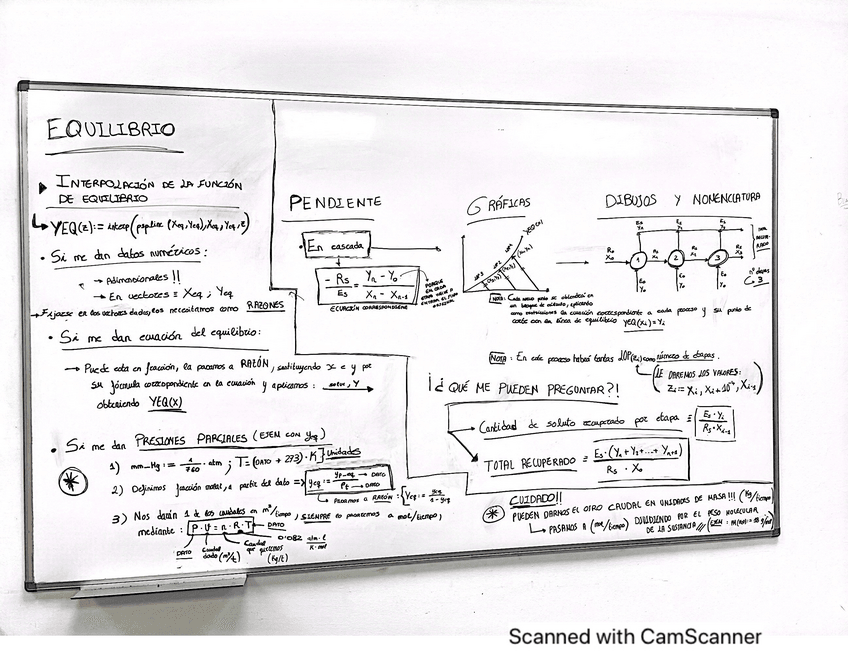 EQUILIBRIO
INTERPOLACIÓN DE LA FUNCIÓN
DE EQUILIBRIO
YEQ(z):= interp(pspline (Xeq, Yeq), Xeq, Yeq, z)
• Si me dan datos numéricos:
→ Adimensionales !!
→ En vectores = Xeq ; Yeq
→ Fijarse en los vectores dados, los necesitamos como RAZONES
• Si me dan ecuación del equilibrio:
→ Puede esta en fracción, la pasamos a RAZÓN, sustituyendo x e y por
su fórmula correspondiente en la ecuación y aplicamos : solve, Y
obteniendo YEQ(X)
• Si me dan PRESIONES PARCIALES (EJEM CON yeq)
1) mm-Hg := 1/760 · atm ; T = (DATO + 273) · K } Unidades
2) Definimos fracción molar, a partir del dato => yeq := yp-eq → DATO / Pt → DATO
PASAMOS A RAZÓN : { Yeq := yeq / 1 - yeq
3) Nos darán 1 de los caudales en m³/tiempo, SIEMPRE lo pasaremos a mol/tiempo,
mediante : P · V = n · R · T → DATO
0.082 atm · l / K · mol
DATO Caudal dado (m³/t) Caudal que queremos (kg/t)
PENDIENTE
• En cascada
- Rs / Es = Yn - Yo / Xn - Xn-1
ECUACIÓN CORRESPONDIENTE
PORQUE
EN CADA
ETAPA
GRÁFICAS
YEQ(X)
NOTA: Cada nuevo punto se obtendrá en
un bloque de cálculo, aplicando
como restricciones la ecuación correspondiente a cada proceso y su punto de
corte con la línea de equilibrio YEQ(Xi) = Yi
DIBUJOS Y NOMENCLATURA
Rs
Xo
1 2 3
nº etapas
3
NOTA : En este proceso habrán tantas LOP(zi) como número de etapas.
LE DAREMOS LOS VALORES:
¡¿QUÉ ME PUEDEN PREGUNTAR?!
→ Cantidad de soluto recuperado por etapa = Es · Yi / Rs · Xi-1
TOTAL RECUPERADO = Es · (Y1 + Y2 + ... + Yn+1) / Rs · Xo
CUIDADO!!
PUEDEN DARNOS EL OTRO CAUDAL EN UNIDADES DE MASA!!! (Kg/tiempo)
↳ PASAMOS A (mol/tiempo) DIVIDIENDO POR EL PESO MOLECULAR
DE LA SUSTANCIA //
Scanned with CamScanner